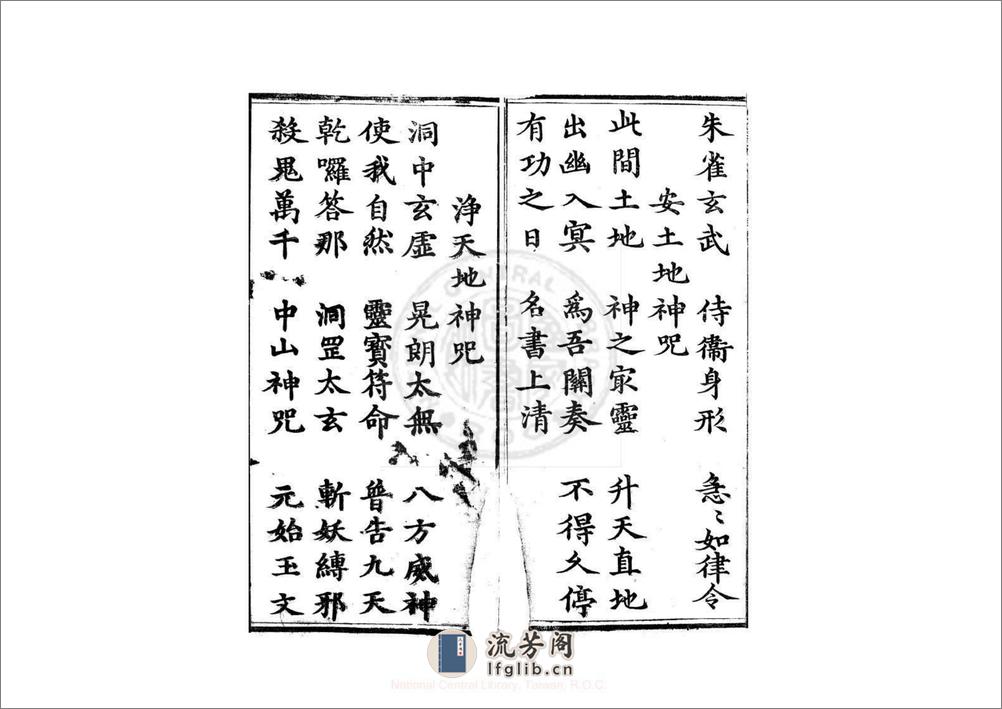 朱雀玄武 侍衞身形 急〻如律令
安土地神咒
此間土地 神之㝡靈 升天直地
出幽入冥 爲吾關奏 不得久停
有功之日 名書上清
浄天地神咒
洞中玄虛 晃朗太無 八方威神
使我自然 靈寳符命 普告九天
乾囉答那 洞罡太玄 斬妖縛邪
殺鬼萬千 中山神咒 元始玉文
流芳阁
lfglib.cn
National Central Library, Taiwan, R.O.C.